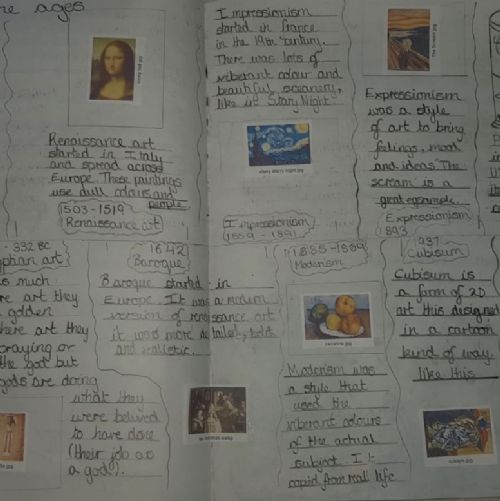 the ages
Renaissance art
started in Italy
and spread across
Europe. These paintings
use dull colours and
people
1503-1519
Renaissance art
Impressionism
started in france
in the 19th century.
There was lots of
viberant colour and
beautiful scenery,
like in Stary Night
starry starry night.jpg
Impressionism
Expressionism
was a style
of art to bring
feelings, mood
and ideas. The
scream is a
great example.
Expressionism
1893
332 BC
art
much
art they
golden
here art they
praying or
the god but
gods are doing
what they
were belived
to have done
(their job as
a god).
1642
Baroque
Baroque started in
Europe. It was a
version of renaissance art
it was more detailed, bold
and realistic.
Modernism
cezanne.jpg
Modernism was
a style that
used the
viberant colours
of the actual
subject. It
copied from real life
Cubisum
Cubisum is
a form of 2D
art this designed
in a cartoon
kind of way
like this